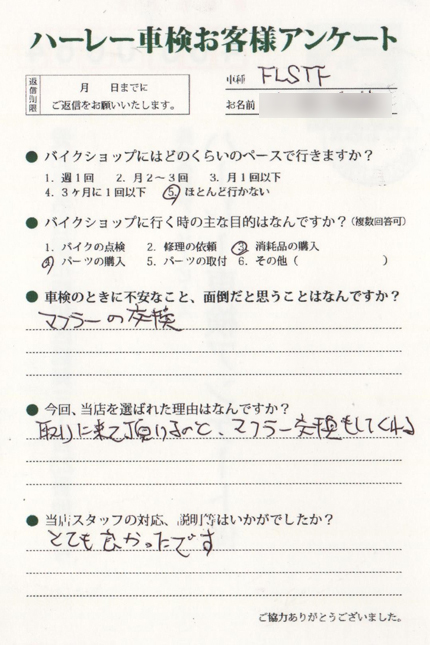 ハーレー車検お客様アンケート
返信期限
月 日までに
ご返信をお願いいたします。
車種 FLSTF
お名前
● バイクショップにはどのくらいのペースで行きますか？
1. 週1回 2. 月2～3回 3. 月1回以下
4. 3ヶ月に1回以下 5. ほとんど行かない
● バイクショップに行く時の主な目的はなんですか？(複数回答可)
1. バイクの点検 2. 修理の依頼 3. 消耗品の購入
4. パーツの購入 5. パーツの取付 6. その他（ ）
● 車検のときに不安なこと、面倒だと思うことはなんですか？
マフラーの交換
● 今回、当店を選ばれた理由はなんですか？
取りに来て頂けるのと、マフラー交換もしてくれる
● 当店スタッフの対応、説明等はいかがでしたか？
とても良かったです
ご協力ありがとうございました。